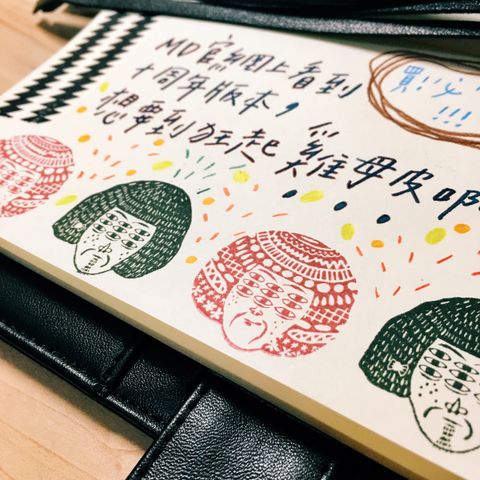 MD官網上看到
十周年版本，
想要到狂起雞母皮啊
買！必
!!!